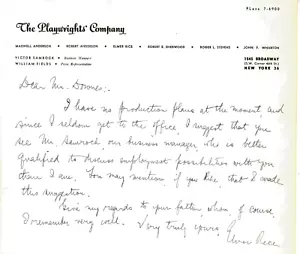 PLaza 7-6900
The Playwrights' Company
MAXWELL ANDERSON • ROBERT ANDERSON • ELMER RICE • ROBERT E. SHERWOOD • ROGER L. STEVENS • JOHN F. WHARTON
VICTOR SAMROCK • Business Manager
WILLIAM FIELDS • Press Representative
1545 BROADWAY
NEW YORK 36
Dear Mr. Downes:-
I have no production plans at the moment, and
since I seldom get to the office, I suggest that you
see Mr. Samrock our business manager, who is better
qualified to discuss employment possibilities with you
than I am. You may mention, if you like, that I made
this suggestion.
Give my regards to your father, whom, of course,
I remember very well. Very truly yours,
Elmer Rice